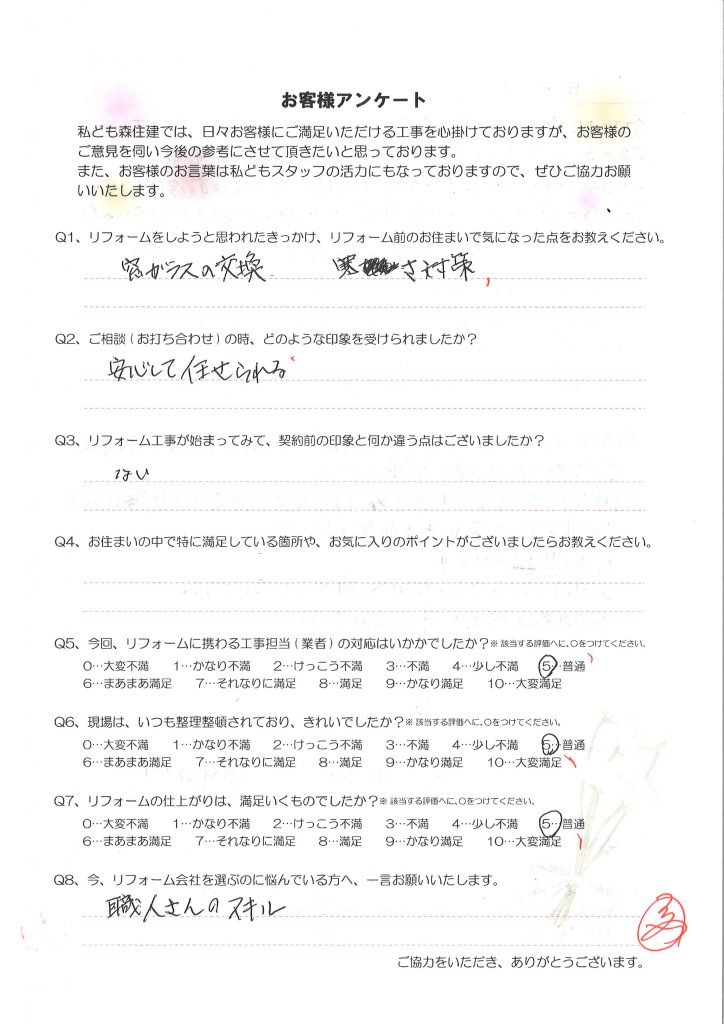 お客様アンケート
私ども森住建では、日々お客様にご満足いただける工事を心掛けておりますが、お客様の
ご意見を伺い今後の参考にさせて頂きたいと思っております。
また、お客様のお言葉は私どもスタッフの活力にもなっておりますので、ぜひご協力お願
いいたします。
Q1、リフォームをしようと思われたきっかけ、リフォーム前のお住まいで気になった点をお教えください。
窓ガラスの交換 寒さ対策
Q2、ご相談(お打ち合わせ)の時、どのような印象を受けられましたか?
安心して任せられる
Q3、リフォーム工事が始まってみて、契約前の印象と何か違う点はございましたか?
ない
Q4、お住まいの中で特に満足している箇所や、お気に入りのポイントがございましたらお教えください。
Q5、今回、リフォームに携わる工事担当(業者)の対応はいかがでしたか?※該当する評価へに、○をつけてください。
0…大変不満 1…かなり不満 2…けっこう不満 3…不満 4…少し不満 5…普通
6…まあまあ満足 7…それなりに満足 8…満足 9…かなり満足 10…大変満足
Q6、現場は、いつも整理整頓されており、きれいでしたか?※該当する評価へに、○をつけてください。
0…大変不満 1…かなり不満 2…けっこう不満 3…不満 4…少し不満 5…普通
6…まあまあ満足 7…それなりに満足 8…満足 9…かなり満足 10…大変満足
Q7、リフォームの仕上がりは、満足いくものでしたか?※該当する評価へに、○をつけてください。
0…大変不満 1…かなり不満 2…けっこう不満 3…不満 4…少し不満 5…普通
6…まあまあ満足 7…それなりに満足 8…満足 9…かなり満足 10…大変満足
Q8、今、リフォーム会社を選ぶのに悩んでいる方へ、一言お願いいたします。
職人さんのスキル
ご協力をいただき、ありがとうございます。